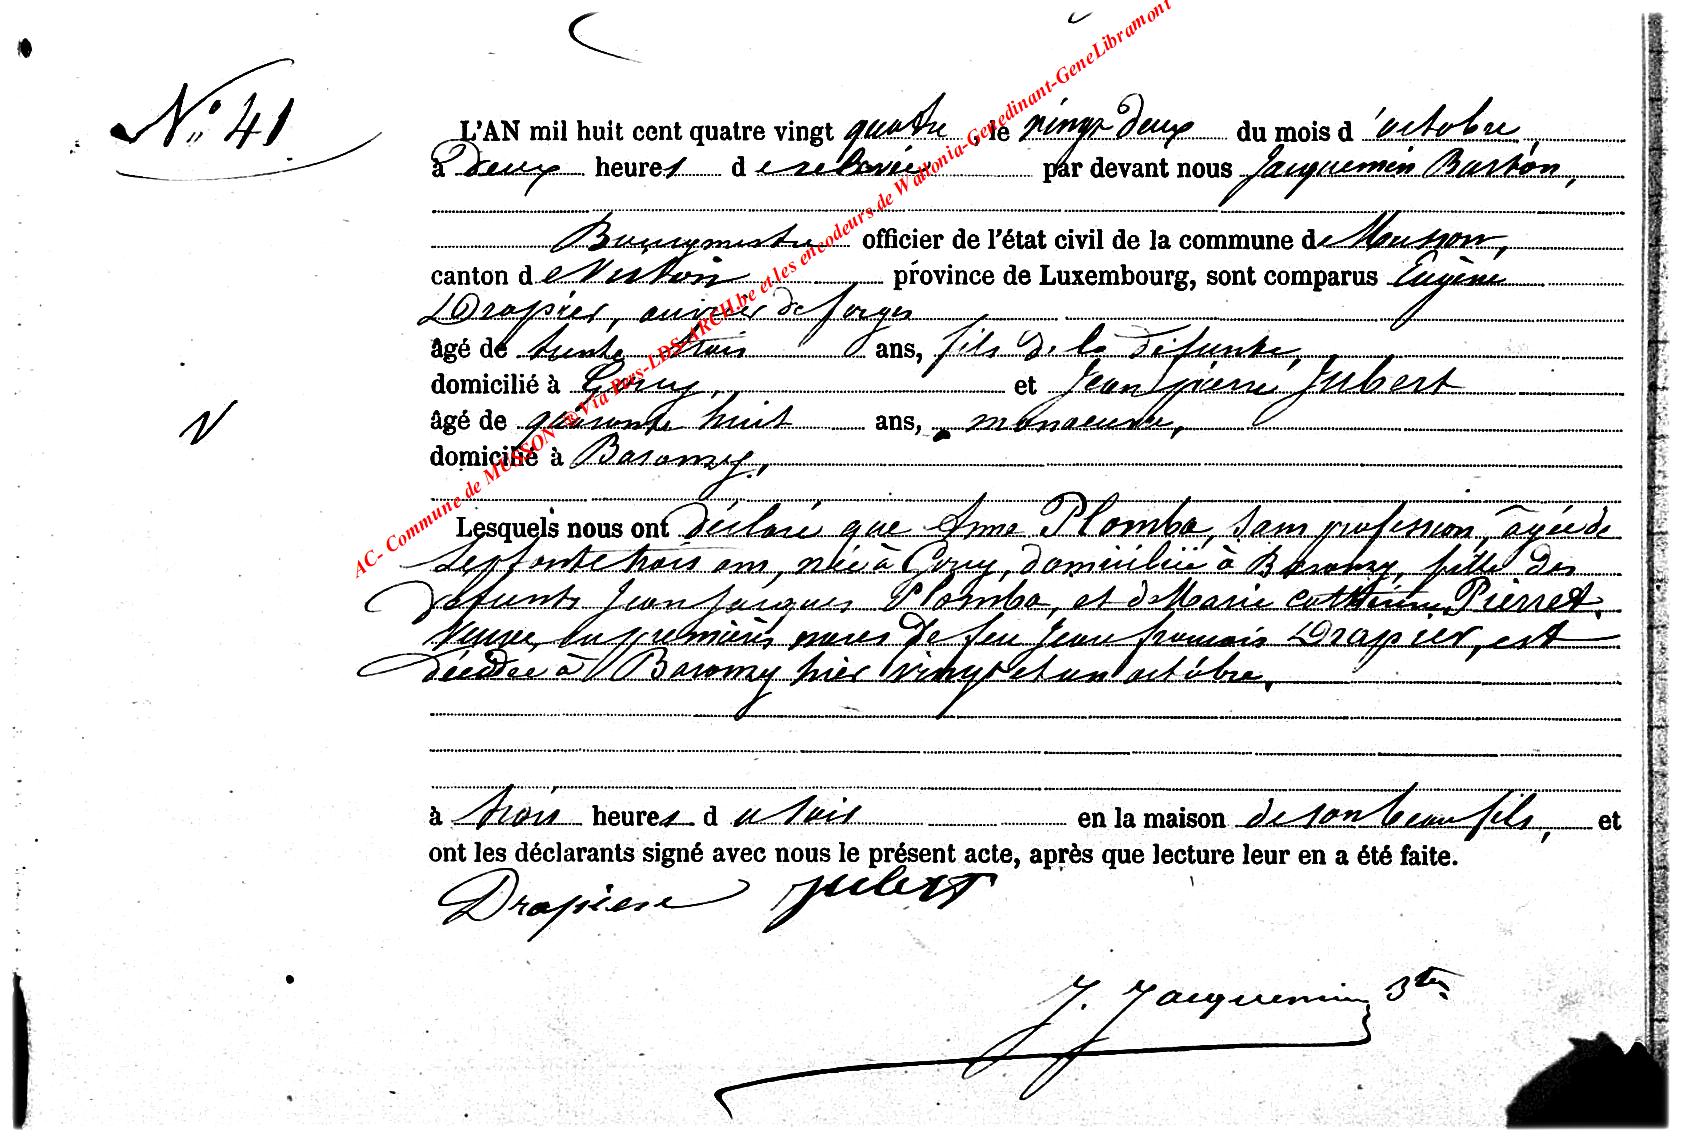 N° 41
L'AN mil huit cent quatre vingt quatre, le vingt deux du mois d'octobre
à deux heures de relevée par devant nous Jacquemin Baston,
Bourgmestre officier de l'état civil de la commune de Musson,
canton de Virton province de Luxembourg, sont comparus Eugène
Drapier, ouvrier de forges
âgé de trente trois ans, fils de la défunte,
domicilié à Gorcy, et Jean Pierre Jubert
âgé de quarante huit ans, manoeuvre,
domicilié à Baranzy,
Lesquels nous ont déclaré que Anne Plomba, sans profession, âgée de
septante trois ans, née à Gorcy, domiciliée à Baranzy, fille des
défunts Jean Jacques Plomba, et de Marie Catherine Pierret.
Veuve, en premières noces de feu Jean françois Drapier, est
décédée à Baranzy hier vingt et un octobre,
à trois heures du soir en la maison de son beau fils, et
ont les déclarants signé avec nous le présent acte, après que lecture leur en a été faite.
Drapiere Jubert
J. Jacquemin Btn
AC- Commune de MUSSON ®Via Pers-LDS-ARCH.be et les encodeurs de Wallonia-Genedinant-GeneLibramont
V